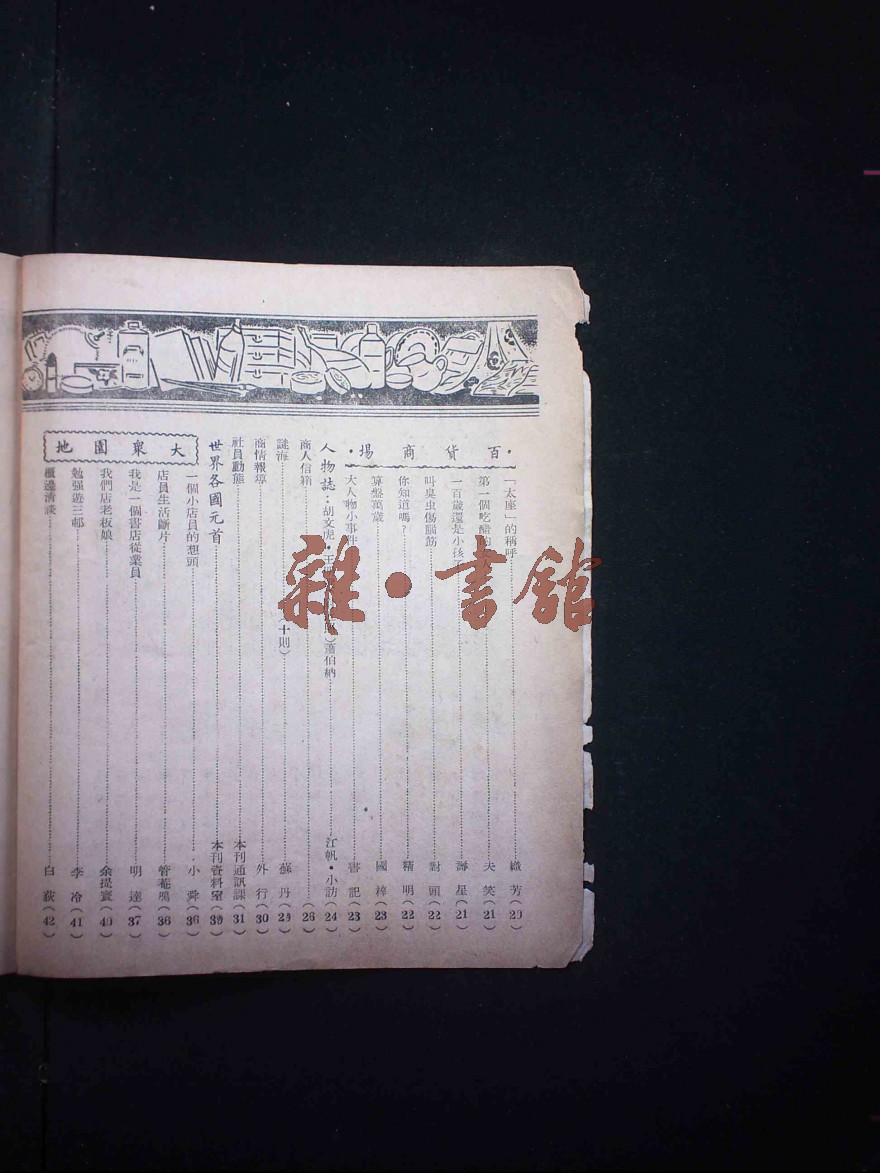 ·百貨商場·
「太座」的稱呼 織芳(20)
第一個吃醋的 夫笑(21)
一百歲還是小孩 壽星(21)
叫臭虫傷腦筋 對頭(22)
你知道嗎? 精明(22)
算盤萬歲 國梓(23)
大人物小事件 書記(23)
人物誌:胡文虎·王 蕭伯納 江帆·小訪(24)
商人信箱 (26)
謎海 (十則) 蘇丹(29)
商情報導 外行(30)
社員動態 本刊通訊課(31)
世界各國元首 本刊資料室(39)
大衆園地
一個小店員的想頭 小舜(36)
店員生活斷片 鳴(36)
我是一個書店從業員 明達(37)
我們店老板娘 余提寰(40)
勉强遊三邨 李冷(41)
櫃邊淸談 白荻(42)
雜·書館